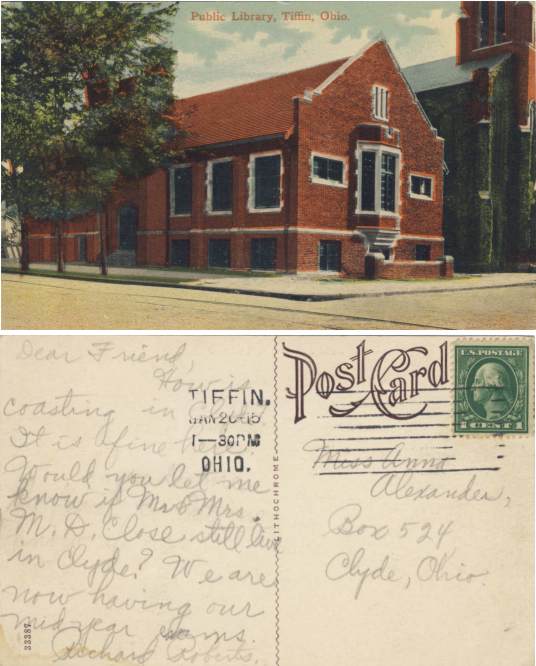 Public Library, Tiffin, Ohio.
Dear Friend,
How is
coasting in Clyde?
It is fine here.
Would you let me
know if Mr & Mrs.
M. D. Close still live
in Clyde? We are
now having our
midyear exams.
Richard Roberts.
33387
TIFFIN.
JAN 26-15
1-30PM
OHIO.
LITHOCHROME
Post Card
U.S. POSTAGE
1 CENT 1
Miss Anna
Alexander,
Box 524
Clyde, Ohio.